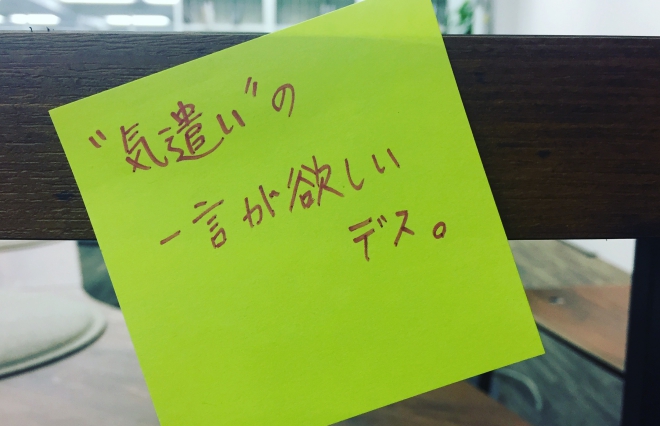 〝気遣い〞の
一言が欲しい
デス。